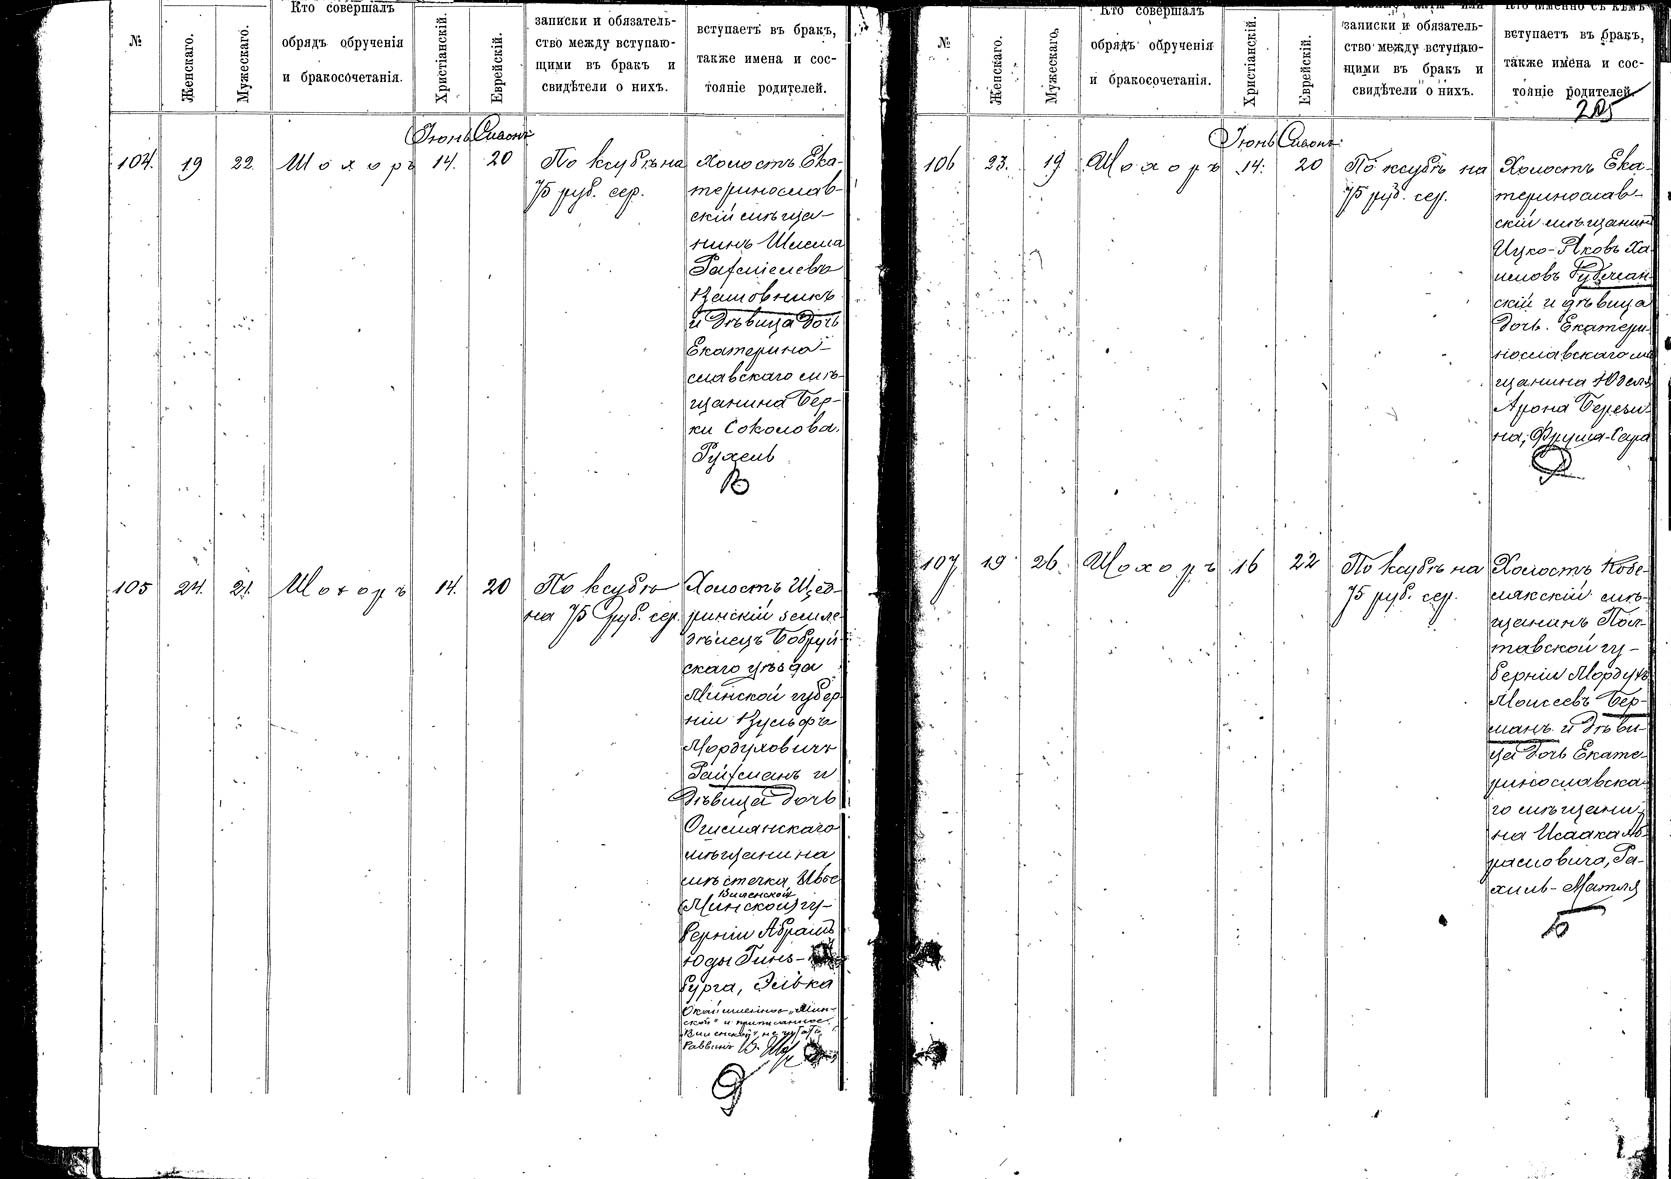 №
Женскаго.
Мужескаго.
Кто совершалъ
обрядъ обрученія
и бракосочетанія.
Христіанскій.
Еврейскій.
записки и обязатель-
ство между вступаю-
щими въ бракъ и
свидѣтели о нихъ.
вступаетъ въ бракъ,
также имена и сос-
тояніе родителей.
Іюнь Сивонъ
104. 19 22 Шохоръ 14. 20
По ксубѣ на
75 руб. сер.
Холостъ Ека-
теринослав-
скій мѣща-
нинъ Шлема
и дѣвица дочь
Екатерино-
славскаго мѣ-
щанина Бер-
ки Соколова
Рухель
105 24. 21. Шохоръ 14. 20
По ксубѣ
на 75 руб. сер.
Холостъ Щед-
ринскій земле-
дѣлецъ Бобруй-
скаго уѣзда
Минской губер-
ніи
Мордуховичъ
Райхманъ и
дѣвица дочь
Ошмянскаго
мѣщанина
мѣстечка Ивье
Виленской
(Минской) гу-
берніи Абрамъ
Юды Гинз-
бурга, Элька
"Мин-
ской" и
"Виленской"
Раввинъ
№
Женскаго.
Мужескаго.
Кто совершалъ
обрядъ обрученія
и бракосочетанія.
Христіанскій.
Еврейскій.
записки и обязатель-
ство между вступаю-
щими въ бракъ и
свидѣтели о нихъ.
Кто именно съ кѣмъ
вступаетъ въ бракъ,
также имена и сос-
тояніе родителей.
205
Іюнь Сивонъ
106 23. 19 Шохоръ 14. 20
По ксубѣ на
75 руб. сер.
Холостъ Ека-
теринослав-
скій мѣщанинъ
Ицко-Яковъ Ха-
имовъ
скій и дѣвица
дочь Екатери-
нославскаго мѣ-
щанина Юделя
Арона Берези-
на, Фрума-Сара
107 19 26 Шохоръ 16 22
По ксубѣ на
75 руб. сер.
Холостъ Кобе-
лякскій мѣ-
щанинъ Пол-
тавской гу-
берніи Мордухъ
Моисеевъ Бер-
манъ и дѣви-
ца дочь Екате-
ринославска-
го мѣщани-
на Исаака Аб-
рамовича, Ра-
хиль-Матля